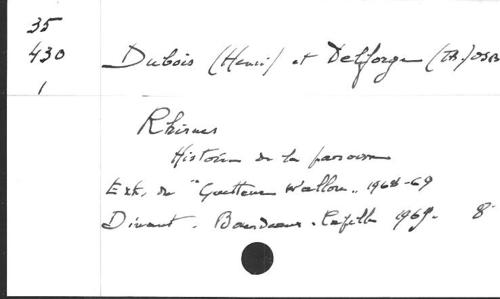 35
430
1
Dubois (Henri) et Delforge (Th.) OSB
Rhisnes
Histoire de la paroisse
Ext. du "Guetteur Wallon" 1968-69
Dinant. Bourdeaux-Capelle 1969. 8°